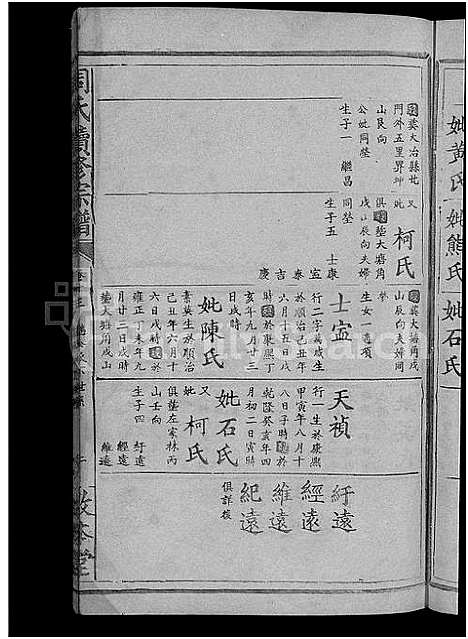 妣黃氏 妣熊氏 妣石氏
葬大冶縣北
門外五里界坤
山艮向
公妣同塋
生子一 繼昌
又
妣
柯氏
俱葬大塘角
戌山辰向夫婦
同塋
生子五 士康
宣
泰
吉
慶
葬大塘角戌
山辰向夫婦同
塋
生女一適項
士宣
行二字萬咸生
於順治己丑年
六月十五日戌
時歿於康熙丁
亥年九月廿三
日戌時
妣陳氏
素英生於順治
己丑年六月十
六日戌時歿於
雍正丁未年九
月廿三日戌時
葬大塘角戌山
天禎
行一生於康熙
甲寅年八月十
八日子時歿於
乾隆癸亥年四
月初二日寅時
妣石氏
又
妣
柯氏
俱葬左家林丙
山壬向
生子四 紆遠
經遠
維遠
紆遠
經遠
維遠
紀遠
俱詳後
周氏續修宗譜
敦本堂